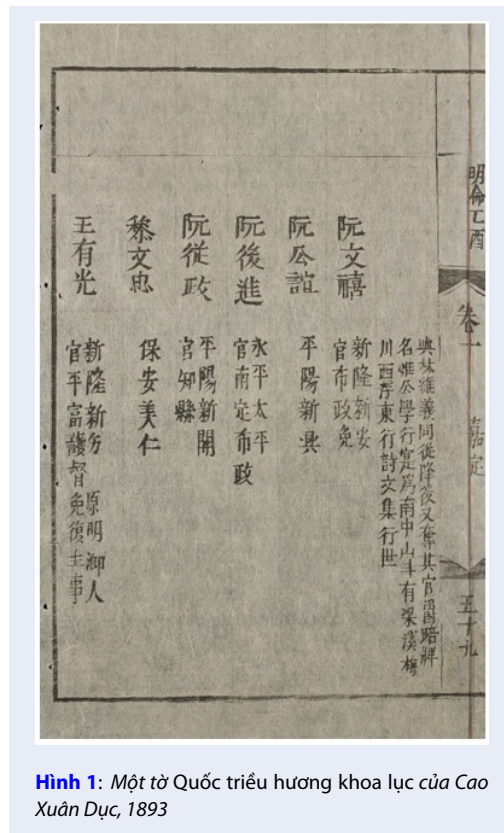 明命乙酉
卷一
嘉定
五十九
林維義同從降後又奪其官
名惟公學行寔爲南中山斗有梁溪梅
川西浮東行詩文集行世
阮文禧
新隆新安
官布政免
阮公誼
平陽新興
阮後進
永平太平
官南定布政
阮從政
平陽新開
官知縣
黎文忠
保安美仁
王有光
新隆新分 原明鄉人
官平富護督免復主事
Hình 1: Một tờ Quốc triều hương khoa lục của Cao
Xuân Dục, 1893